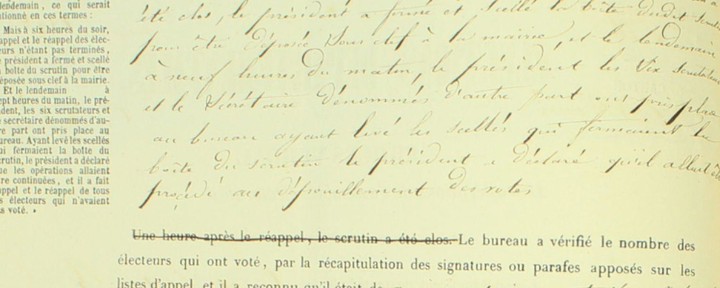 lendemain, ce qui serait
tionné en ces termes :
Mais à six heures du soir,
appel et le réappel des élec-
eurs n'étant pas terminés,
e président a fermé et scellé
boîte du scrutin pour être
éposée sous clef à la mairie.
Et le lendemain à
ept heures du matin, le pré-
dent, les six scrutateurs et
secrétaire dénommés d'au-
re part ont pris place au
ureau. Ayant levé les scellés
ui fermaient la boîte du
crutin, le président a déclaré
ue les opérations allaient
re continuées, et il a fait
appel et le réappel de tous
s électeurs qui n'avaient
s voté. »
été clos, le président a fermé et scellé la boîte dudit
pour être déposée sous clef à la mairie, et le lendemain
à neuf heures du matin, le président les six
et le Secrétaire dénommés d'autre part ont pris place
au bureau ayant levé les scellés qui fermaient la
boîte du scrutin le président a déclaré qu'il allait être
procédé au dépouillement des votes
Une heure après le réappel, le scrutin a été clos. Le bureau a vérifié le nombre des
électeurs qui ont voté, par la récapitulation des signatures ou parafes apposés sur les
listes d'appel, et il a reconnu qu'il était de